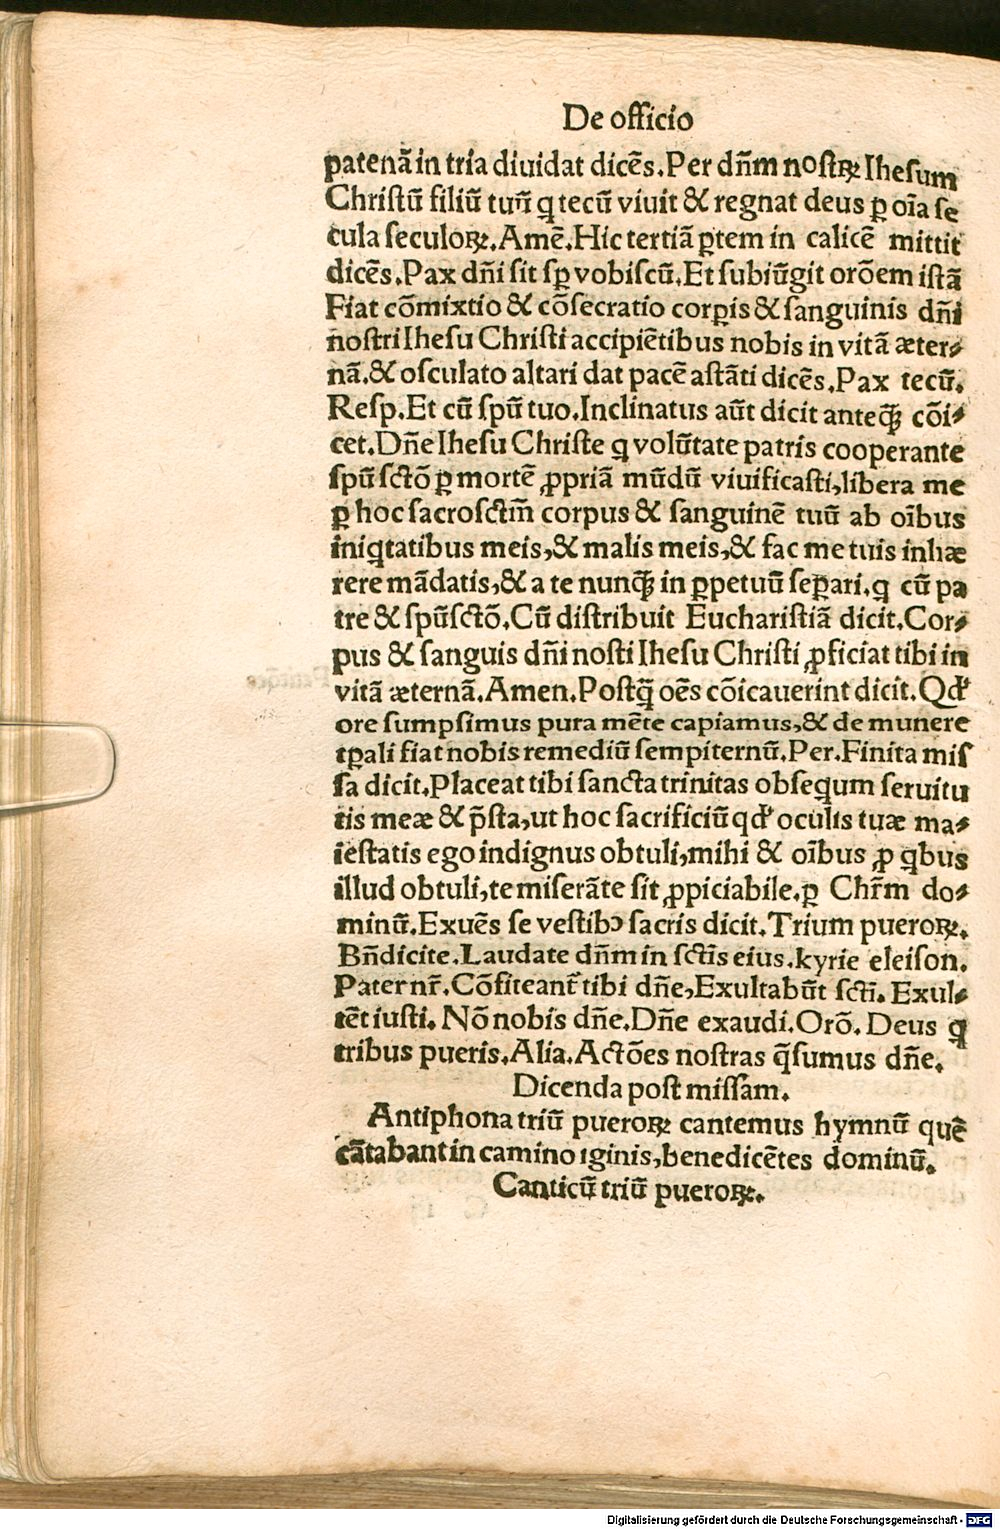 De officio
patenā in tria diuidat dicēs.Per dn̄m noſtꝝ Iheſum
Chriſtū filiū tuū q̱ tecū viuit & regnat deus ꝑ oīa ſe
cula ſeculoꝝ.Amē.Hic tertiā ꝑtem in calicē mittit
dicēs.Pax dn̄i ſit ſꝑ vobiſcū.Et ſubiūgit orōem iſtā
Fiat cōmixtio & cōſecratio corꝑis & ſanguinis dn̄i
noſtri Iheſu Chriſti accipiētibus nobis in vitā æter⸗
nā.& oſculato altari dat pacē aſtāti dicēs.Pax tecū.
Reſp.Et cū ſpū tuo.Inclinatus aūt dicit anteꝙ̄ cōi⸗
cet.Dn̄e Iheſu Chriſte q̱ volūtate patris cooperante
ſpū ſctō ꝑ mortē ꝓpriā mūdū viuificaſti,libera me
ꝑ hoc ſacroſctm̄ corpus & ſanguinē tuū ab oībus
iniq̱tatibus meis,& malis meis,& fac me tuis inhæ
rere mādatis,& a te nunꝙ̄ in ꝑpetuū ſeꝑari.q̱ cū pa
tre & ſpūſctō.Cū diſtribuit Euchariſtiā dicit.Cor⸗
pus & ſanguis dn̄i noſti Iheſu Chriſti ꝓficiat tibi in
vitā æternā.Amen.Poſtq̄ oēs cōicauerint dicit.Qď
ore ſumpſimus pura mēte capiamus,& de munere
tꝑali fiat nobis remediū ſempiternū.Per.Finita miſ
ſa dicit.Placeat tibi ſancta trinitas obſeq̱um ſeruitu
tis meæ & p̄ſta,ut hoc ſacrificiū qď oculis tuæ ma⸗
ieſtatis ego indignus obtuli,mihi & oībus ꝓ q̱bus
illud obtuli,te miſerāte ſit ꝓpiciabile.ꝑ Chr̄m do⸗
minū.Exuēs ſe veſtibꝰ ſacris dicit.Trium pueroꝝ.
Bn̄dicite.Laudate dn̄m in ſctīs eius.kyrie eleiſon.
Pater nr̄.Cōfiteant̄ tibi dn̄e,Exultabūt ſctī.Exul⸗
tēt iuſti.Nō nobis dn̄e.Dn̄e exaudi.Orō.Deus q̱
tribus pueris.Alia.Actōes noſtras q̄ſumus dn̄e.
Dicenda poſt miſſam.
Antiphona triū pueroꝝ cantemus hymnū quē
cātabant in camino ignis,benedicētes dominū.
Canticū triū pueroꝝ.
Digitalisierung gefördert durch die Deutsche Forschungsgemeinschaft - DFG